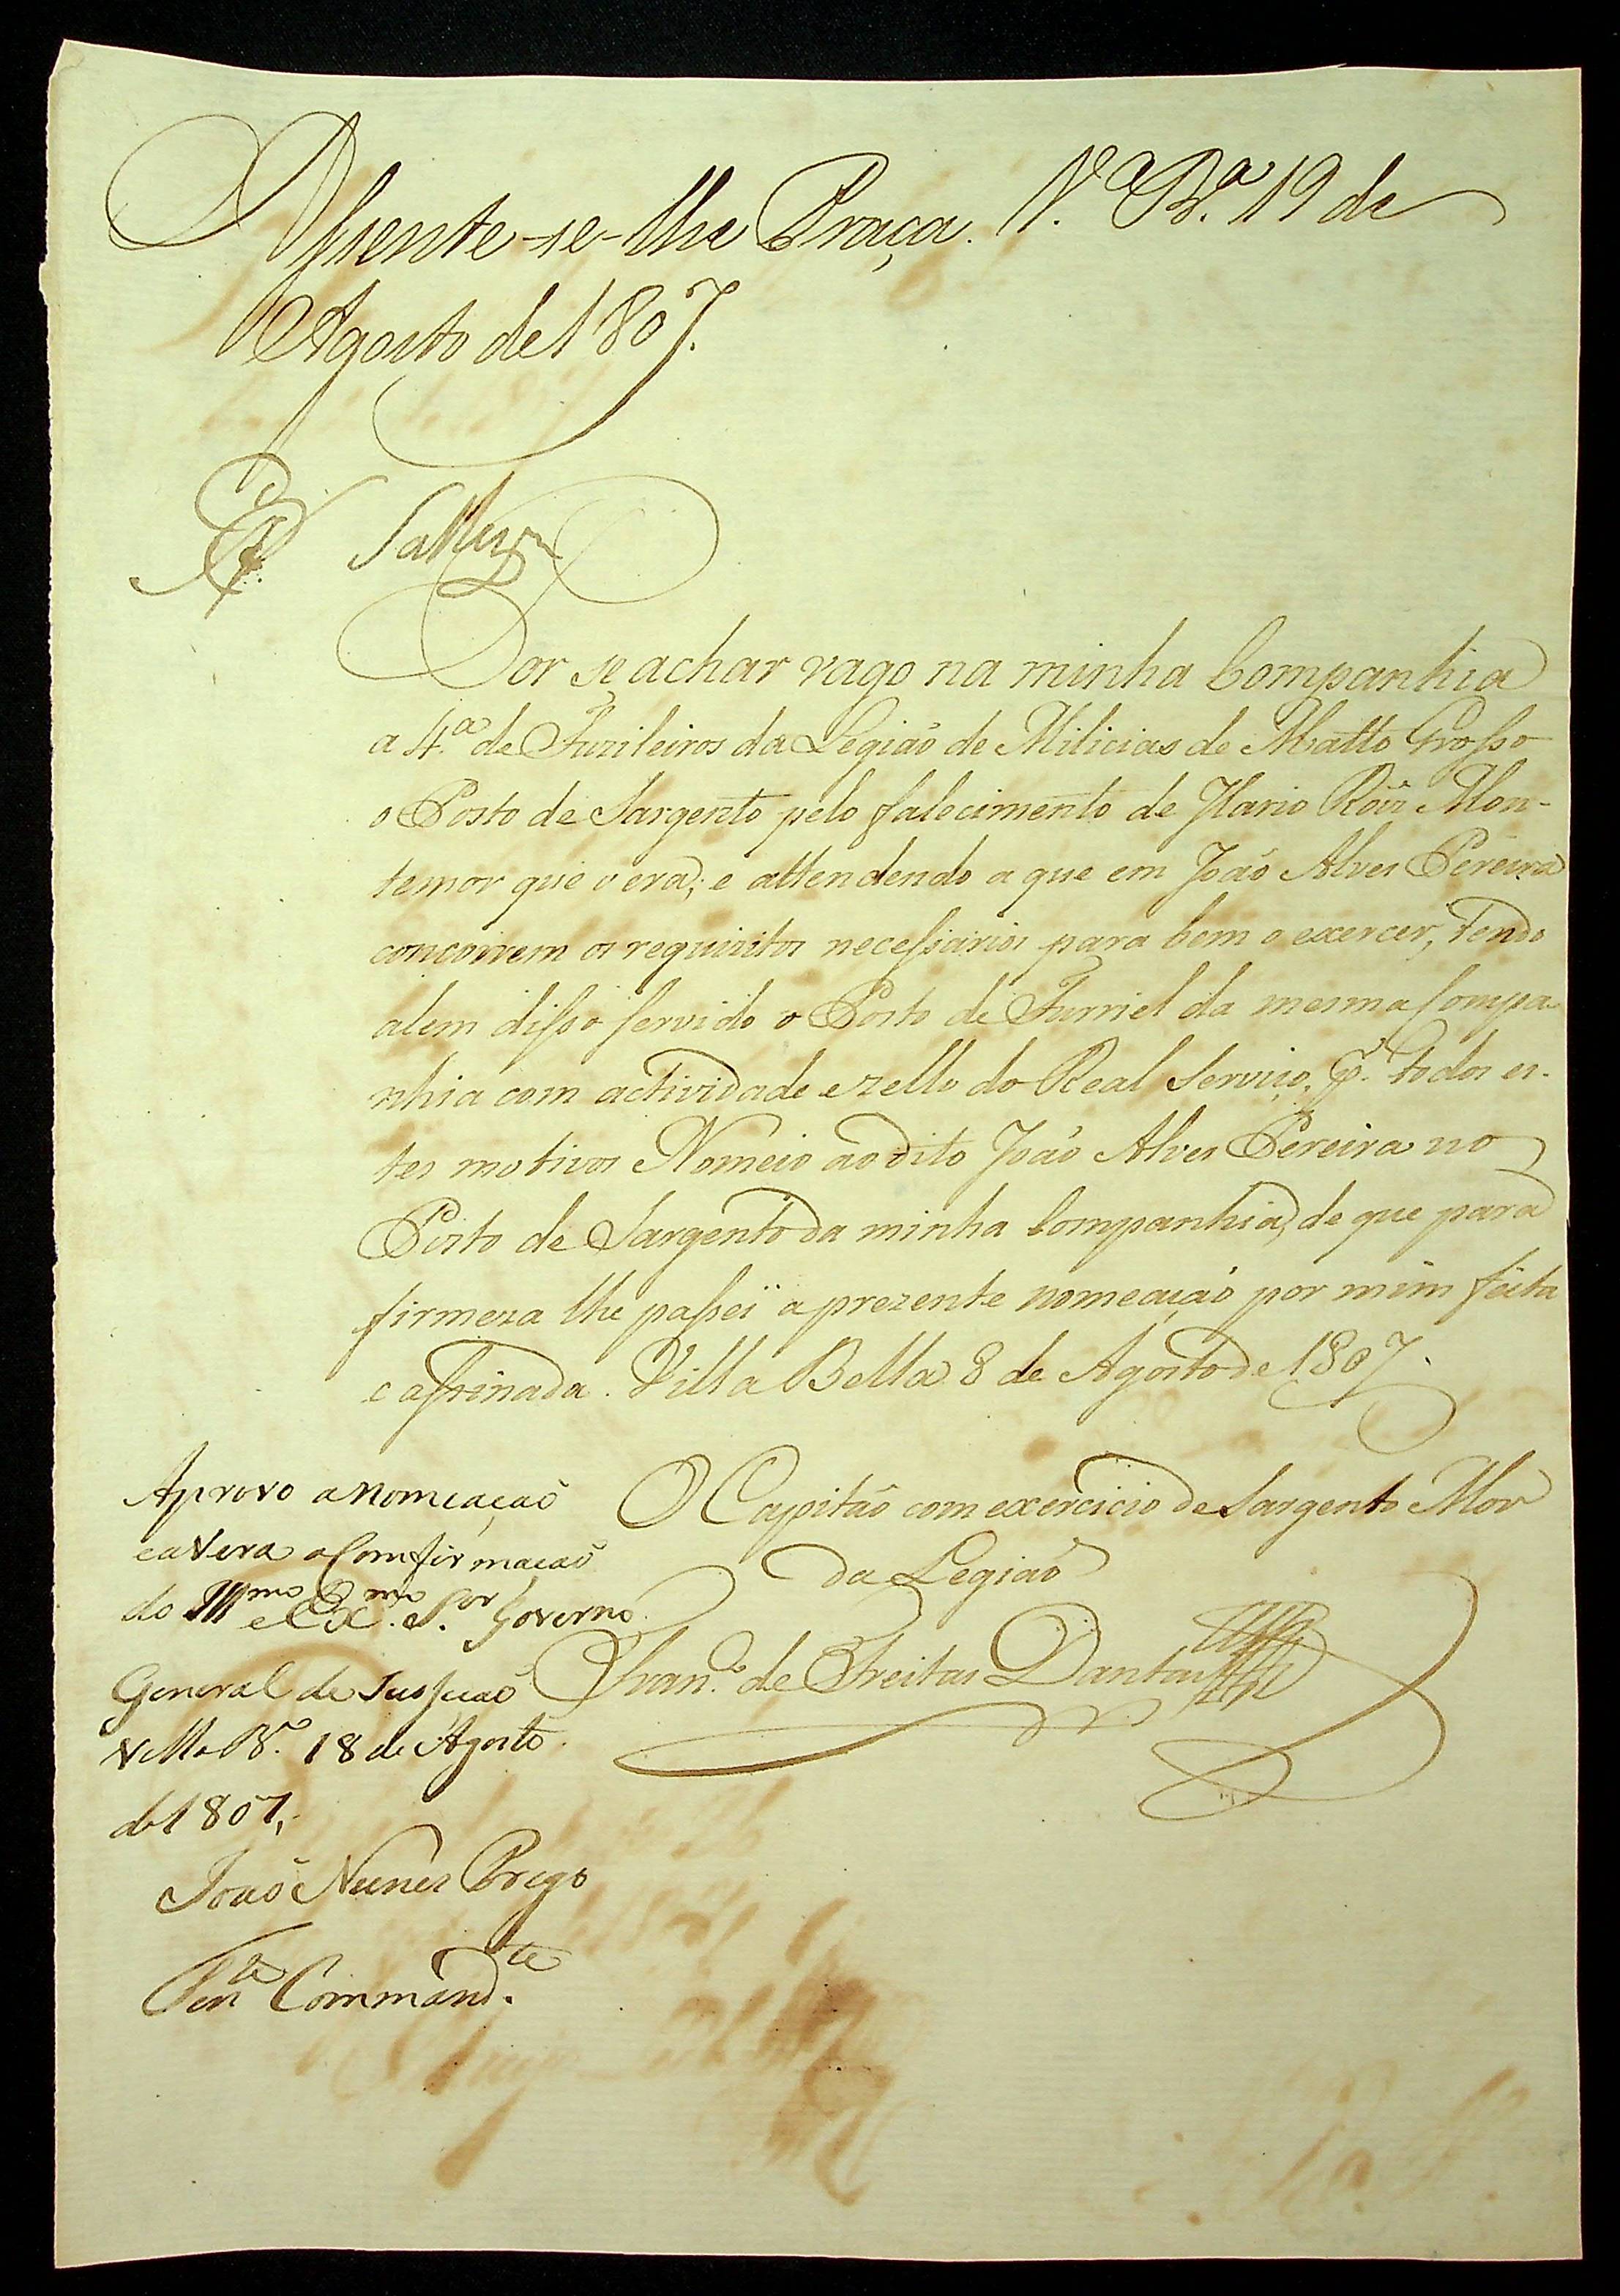 Assente-se-lhe Praça. V.ª B.ª 19 de
Agosto de 1807.
Por se achar vago na minha Companhia
a 4.ª de Fuzileiros da Legião de Milicias de Matto Grosso
o Posto de Sargento pelo falecimento de Ilario Roiz Mon-
temor que o era; e attendendo a que em João Alves Pereira
concorrem os requizitos necessarios para bem o exercer, tendo
alem disso servido o Posto de Furriel da mesma Compa
nhia com actividade e zello do Real Serviço, p.r todos es-
tes motivos Nomeio ao dito João Alves Pereira no
Posto de Sargento da minha Companhia, de que para
firmeza lhe passei a prezente nomeação por mim feita
e assinada. Villa Bella 8 de Agosto de 1807.
O Capitão com exercicio de Sargento Mor
da Legião
Fran.co de Freitas Dantas
Aprovo a nomeação
e avera a Comfirmação
do Ill.mo e Ex.mo S.or Governo
General de
Villa B.ª 18 de Agosto
de 1807.
João Nunes Prego
Ten.te Command.te